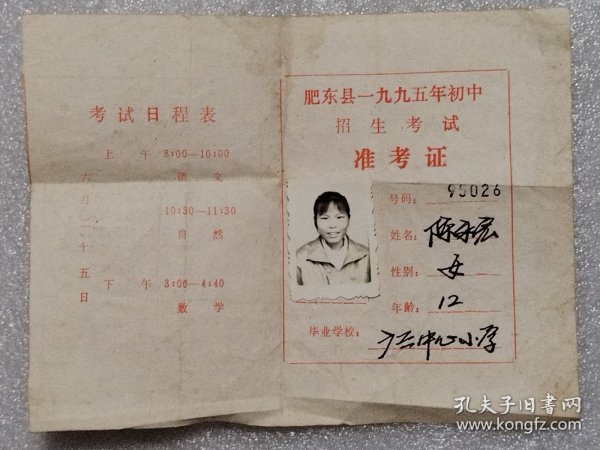 考试日程表
六月二十五日
上午 8:00—10:00
语文
10:30—11:30
自然
下午 3:00—4:40
数学
肥东县一九九五年初中
招生考试
准考证
号码: 95026
姓名: 陈
性别: 女
年龄: 12
毕业学校: 中心小学
孔夫子旧书网
www.kongfz.com